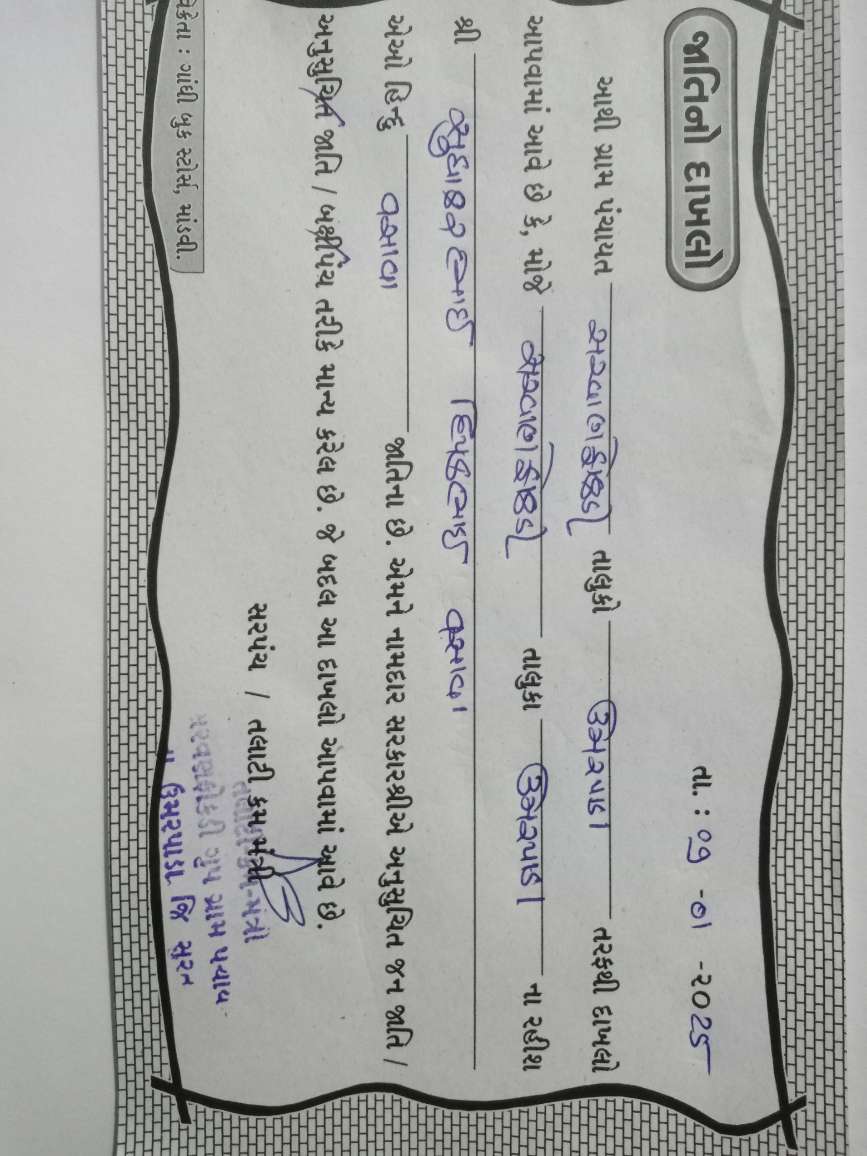 જાતિનો દાખલો
તા. : ૧૭ -૦૧ -૨૦૨૫
આથી ગ્રામ પંચાયત સરવાણફોકડી તાલુકો ઉમરપાડા તરફથી દાખલો
આપવામાં આવે છે કે, મોજે સરવાણફોકડી તાલુકા ઉમરપાડા ના રહીશ
શ્રી વસાવા
એઓ હિન્દુ વસાવા જાતિના છે. એમને નામદાર સરકારશ્રીએ અનુસુચિત જન જાતિ /
અનુસુચિત જાતિ / બક્ષીપંચ તરીકે માન્ય કરેલ છે. જે બદલ આ દાખલો આપવામાં આવે છે.
સરપંચ / તલાટી કમ મંત્રી
તલાટી કમ મંત્રી
ગ્રુપ ગ્રામ પંચાય
ઉમરપાડા જિ સુરત
વિક્રેતા : ગાંધી બુક સ્ટોર્સ, માંડવી.